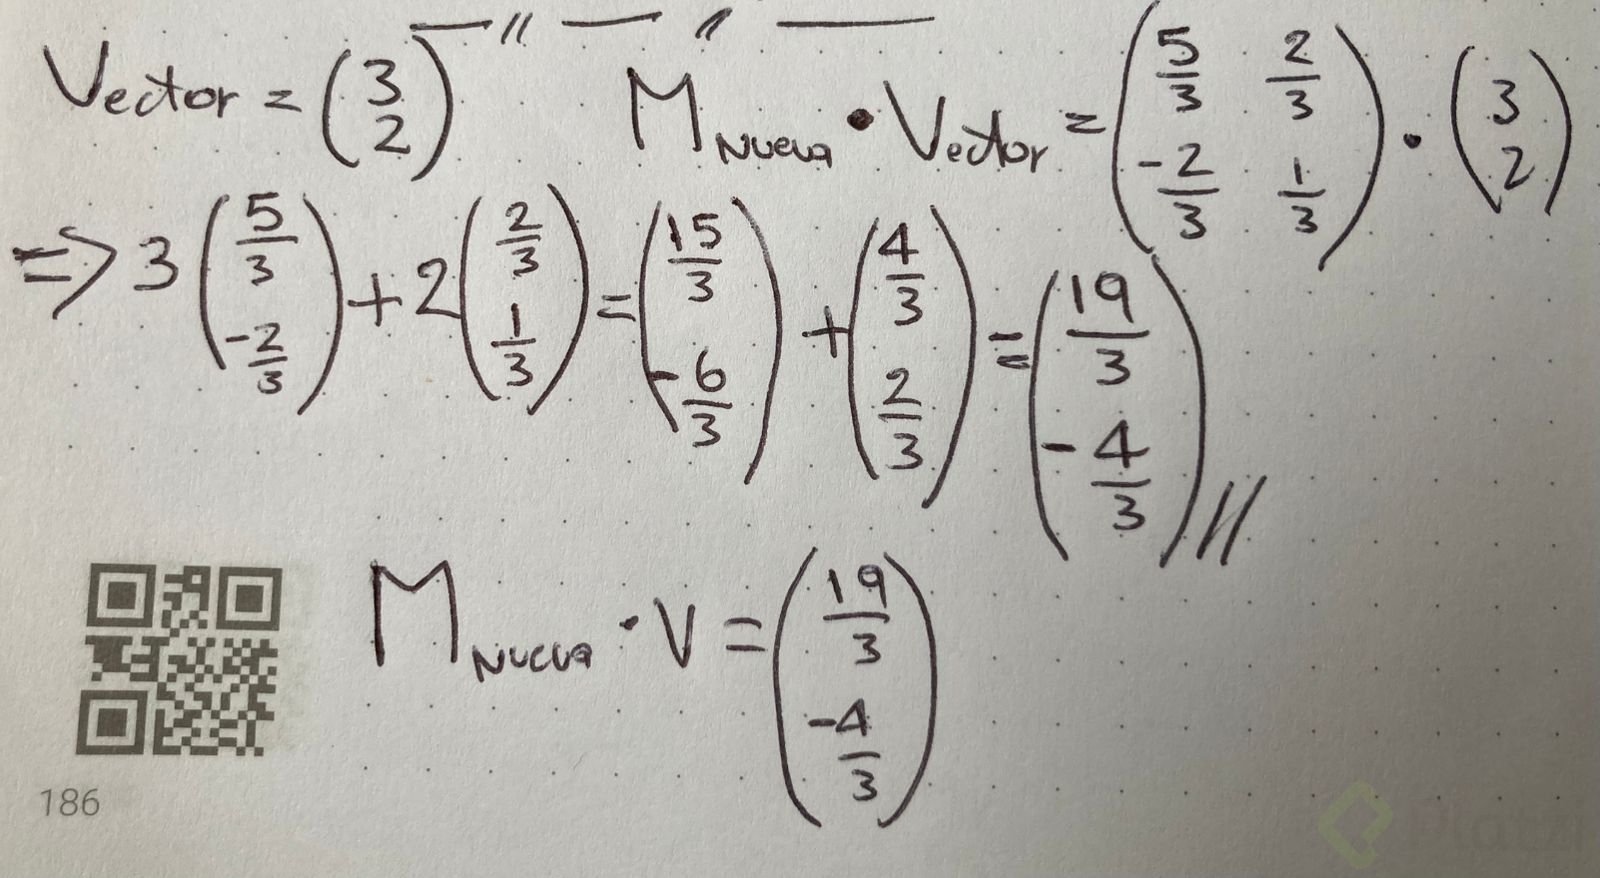 Vector = (3 2) M Nueva · Vector = (5/3 2/3 -2/3 1/3) · (3 2)
=> 3 (5/3 -2/3) + 2 (2/3 1/3) = (15/3 -6/3) + (4/3 2/3) = (19/3 -4/3) //
M Nueva · V = (19/3 -4/3)
186
Platzi